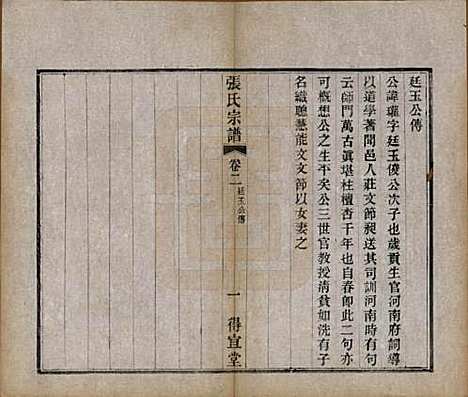 廷玉公傳
公諱瓘字廷玉倰公次子也歲貢生官河南府訓導
以道學著聞邑人莊文節昶送其司訓河南時有句
云師門萬古眞堪柱檀杏千年也自春卽此二句亦
可概想公之生平矣公三世官教授淸貧如洗有子
名織聰慧能文文節以女妻之
張氏宗譜
卷二
廷玉公傳
一
得宜堂